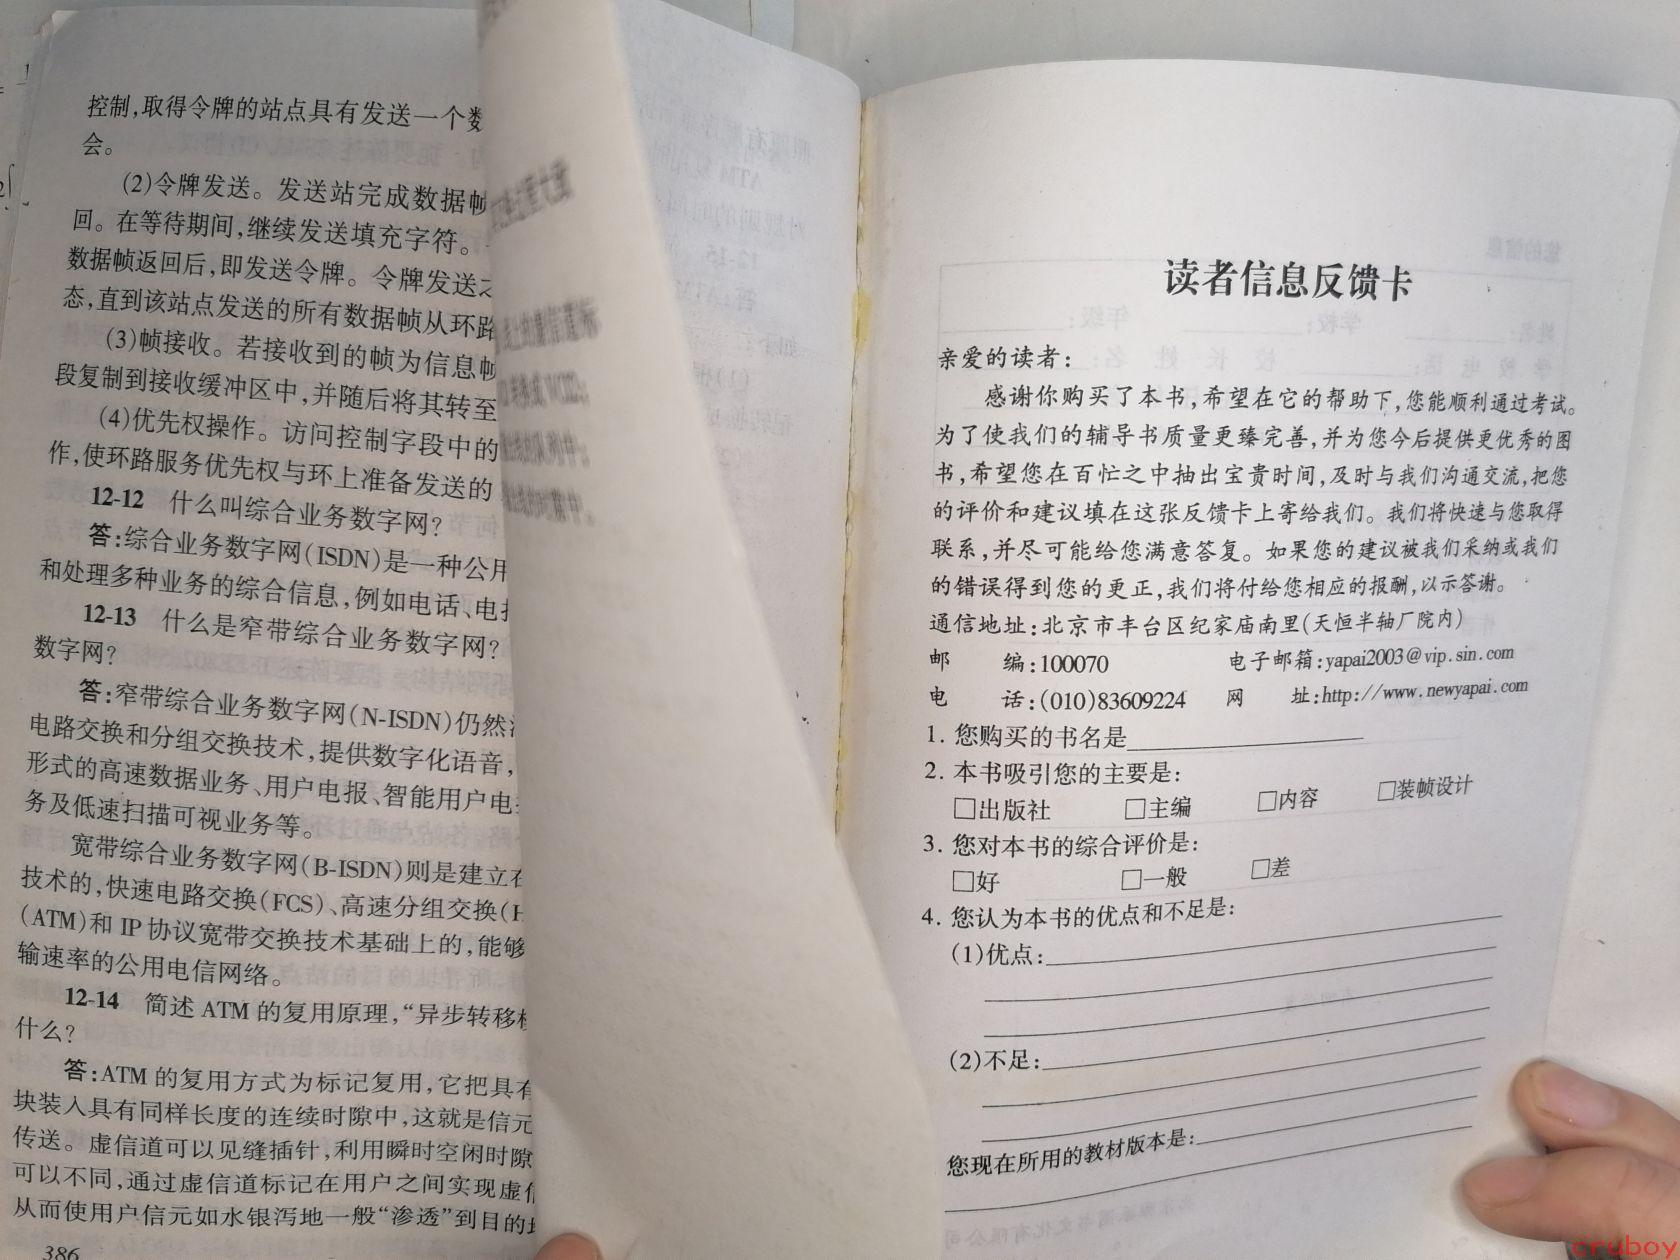 控制,取得令牌的站点具有发送一个数
会。
(2)令牌发送。发送站完成数据帧
回。在等待期间,继续发送填充字符。
数据帧返回后,即发送令牌。令牌发送之
态,直到该站点发送的所有数据帧从环路
(3)帧接收。若接收到的帧为信息帧
段复制到接收缓冲区中,并随后将其转至
(4)优先权操作。访问控制字段中的
作,使环路服务优先权与环上准备发送的
12-12 什么叫综合业务数字网?
答:综合业务数字网(ISDN)是一种公用
和处理多种业务的综合信息,例如电话、电报
12-13 什么是窄带综合业务数字网?
数字网?
答:窄带综合业务数字网(N-ISDN)仍然沿
电路交换和分组交换技术,提供数字化语音,
形式的高速数据业务、用户电报、智能用户电
务及低速扫描可视业务等。
宽带综合业务数字网(B-ISDN)则是建立在
技术的,快速电路交换(FCS)、高速分组交换(H
(ATM)和IP协议宽带交换技术基础上的,能够
输速率的公用电信网络。
12-14 简述ATM的复用原理,“异步转移模
什么?
答:ATM的复用方式为标记复用,它把具有
块装入具有同样长度的连续时隙中,这就是信元
传送。虚信道可以见缝插针,利用瞬时空闲时隙
可以不同,通过虚信道标记在用户之间实现虚信
从而使用户信元如水银泻地一般“渗透”到目的地
386
读者信息反馈卡
亲爱的读者:
感谢你购买了本书,希望在它的帮助下,您能顺利通过考试。
为了使我们的辅导书质量更臻完善,并为您今后提供更优秀的图
书,希望您在百忙之中抽出宝贵时间,及时与我们沟通交流,把您
的评价和建议填在这张反馈卡上寄给我们。我们将快速与您取得
联系,并尽可能给您满意答复。如果您的建议被我们采纳或我们
的错误得到您的更正,我们将付给您相应的报酬,以示答谢。
通信地址:北京市丰台区纪家庙南里(天恒半轴厂院内)
邮 编:100070 电子邮箱:yapai2003@vip.sin.com
电 话:(010)83609224 网 址:http://www.newyapai.com
1. 您购买的书名是
2. 本书吸引您的主要是:
□出版社 □主编 □内容 □装帧设计
3. 您对本书的综合评价是:
□好 □一般 □差
4. 您认为本书的优点和不足是:
(1)优点:
(2)不足:
您现在所用的教材版本是:
cruboy